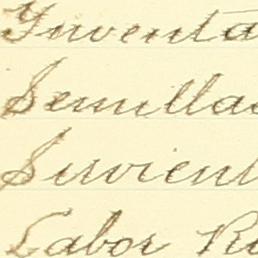 Inventa
Semillas
Sirvient
Labor R